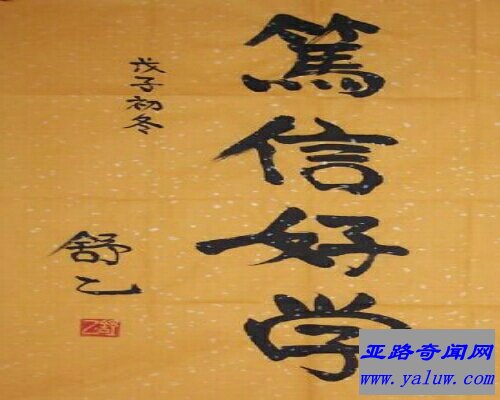 篤信好学
戊子初冬
舒乙
舒乙
亚路奇闻网
www.yaluw.com